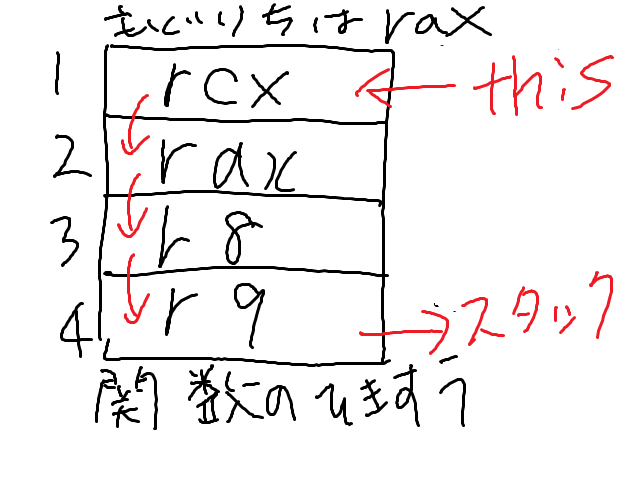 もどりちは rax
1 rcx ← this
2 rax
3 r8
4 r9 → スタック
関数のひきすう